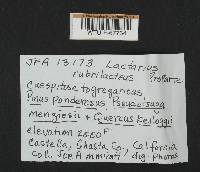 JFA 13173 Lactarius
rubrilacteus
Cuespitose to gregarious
Pinus ponderosus, Pseudotsuga
menziesii + Quercus kelloggii
elevation 2500F
Castella, Shasta Co., California
Col. Joe Ammirati / dig. photos